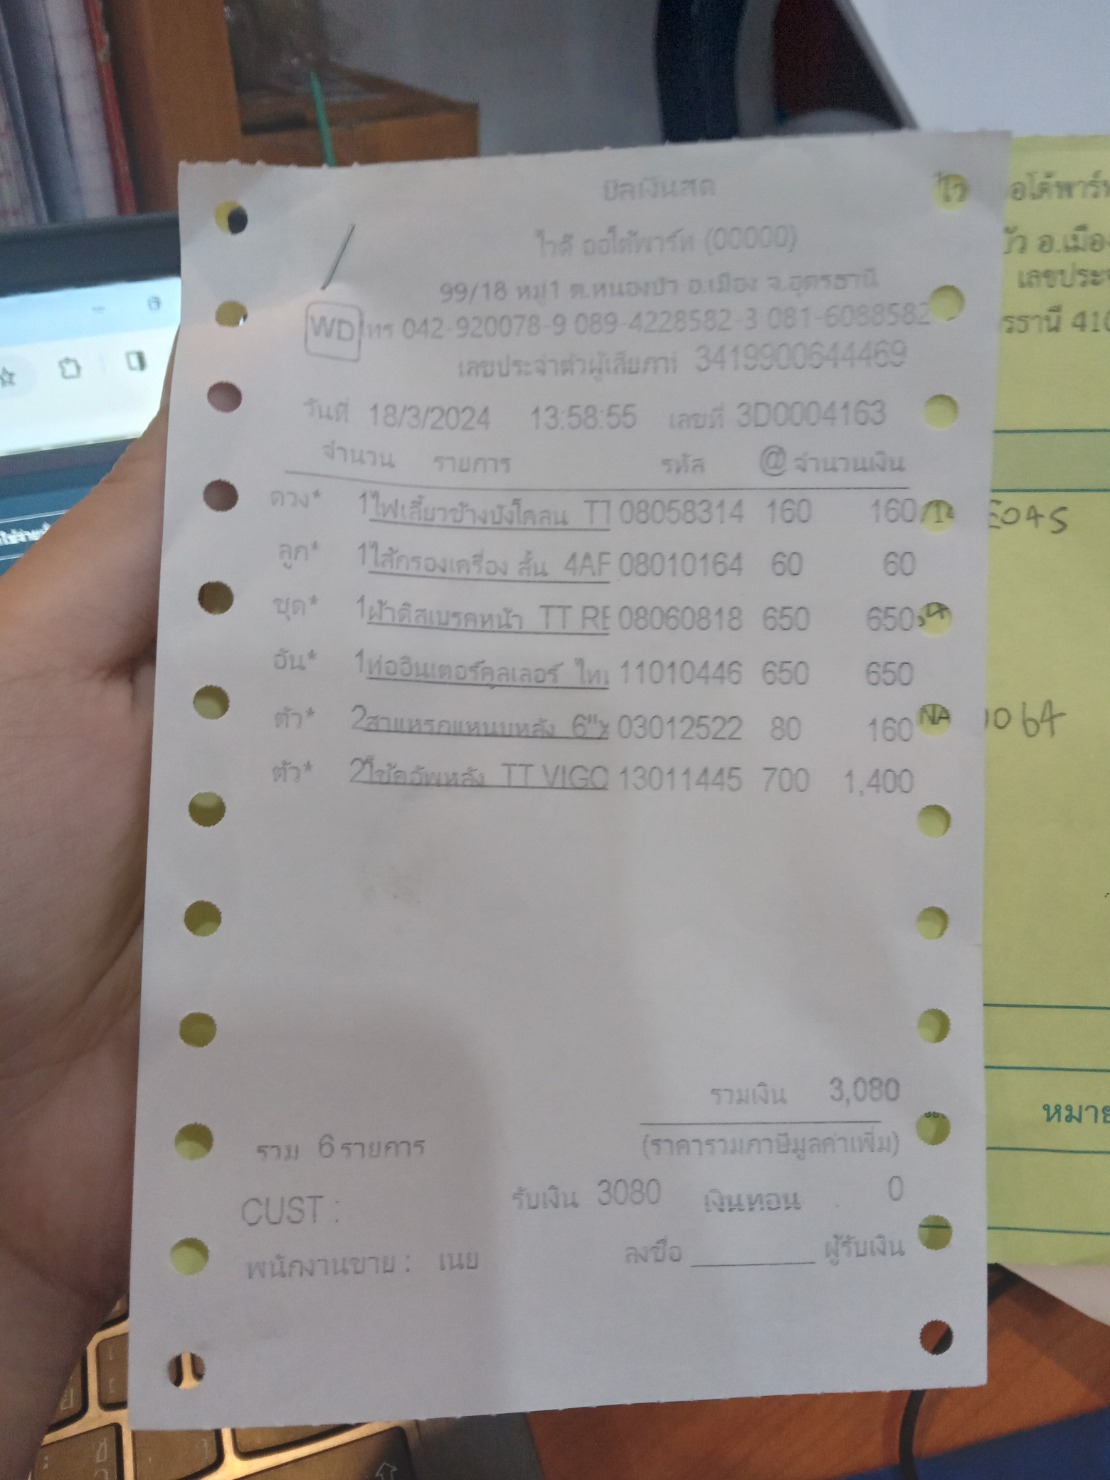 บิลเงินสด
ไวดี ออโต้พาร์ท (00000)
99/18 หมู่1 ต.หนองบัว อ.เมือง จ.อุดรธานี
WD โทร 042-920078-9 089-4228582-3 081-6088582
เลขประจำตัวผู้เสียภาษี 3419900644469
วันที่ 18/3/2024 13:58:55 เลขที่ 3D0004163
จำนวน รายการ รหัส @ จำนวนเงิน
ดวง* 1ไฟเลี้ยวข้างบังโคลน TT 08058314 160 160
ลูก* 1ไส้กรองเครื่อง สั้น 4AF 08010164 60 60
ชุด* 1ผ้าดิสเบรคหน้า TT RE 08060818 650 650
อัน* 1ท่ออินเตอร์คูลเลอร์ ไท 11010446 650 650
ตัว* 2สาแหรกแหนบหลัง 6"x 03012522 80 160
ตัว* 2โช๊คอัพหลัง TT VIGO 13011445 700 1,400
รวมเงิน 3,080
รวม 6 รายการ (ราคารวมภาษีมูลค่าเพิ่ม)
CUST : รับเงิน 3080 เงินทอน 0
พนักงานขาย : เนย ลงชื่อ ผู้รับเงิน
อโต้พาร์ท
บัว อ.เมือง
เลขประจำ
รธานี 410
E045
NA 0064
หมาย